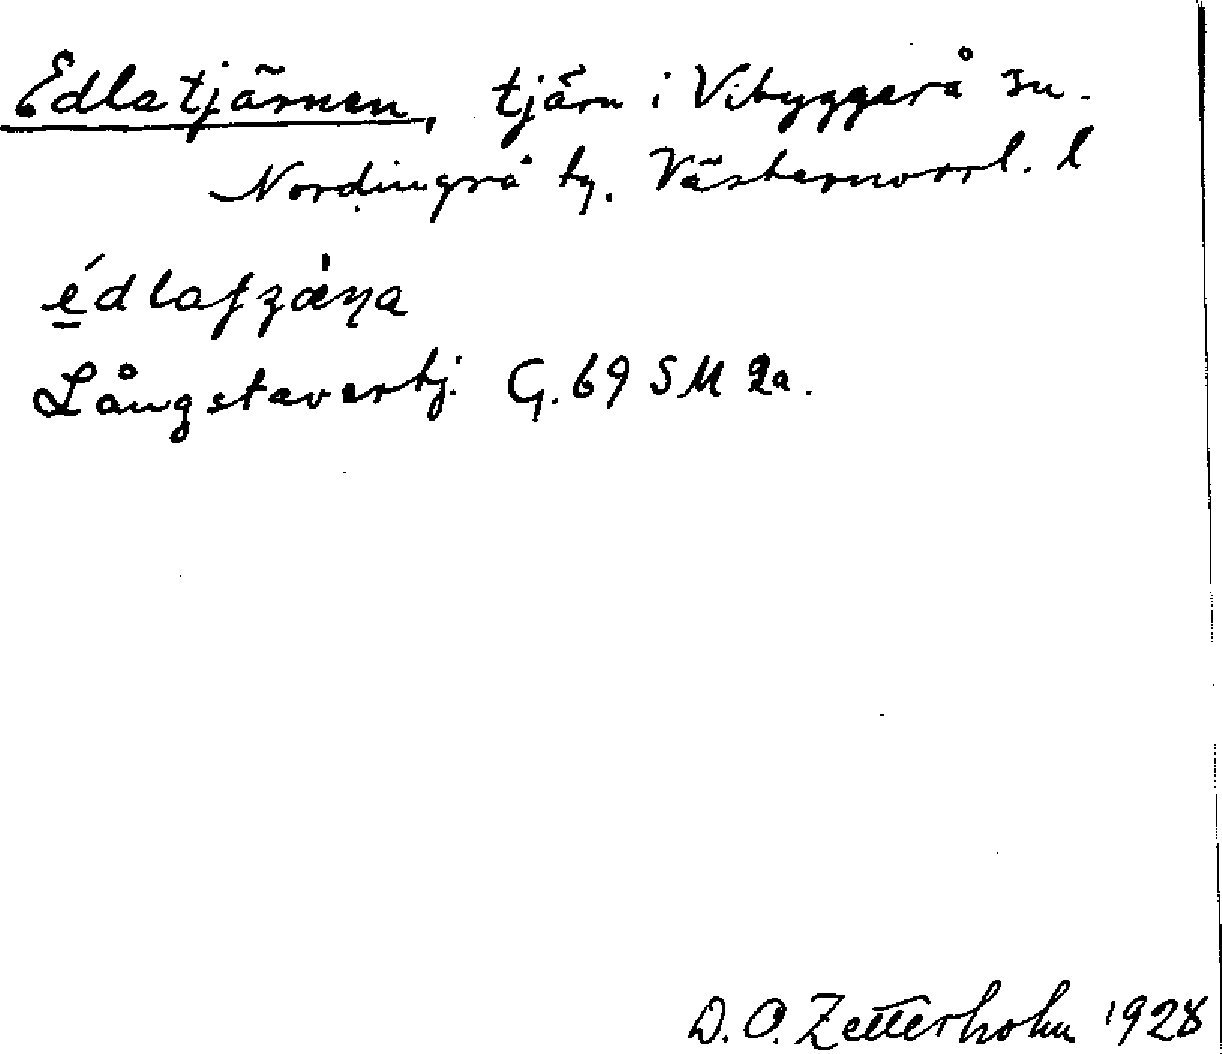 Edlatjärnen, tjärn i Vibyggerå sn.
Nordingrå tg. Västernorrl. l
Långstavertj. G. 69 SM 2a.
D. O. Zetterholm 1928